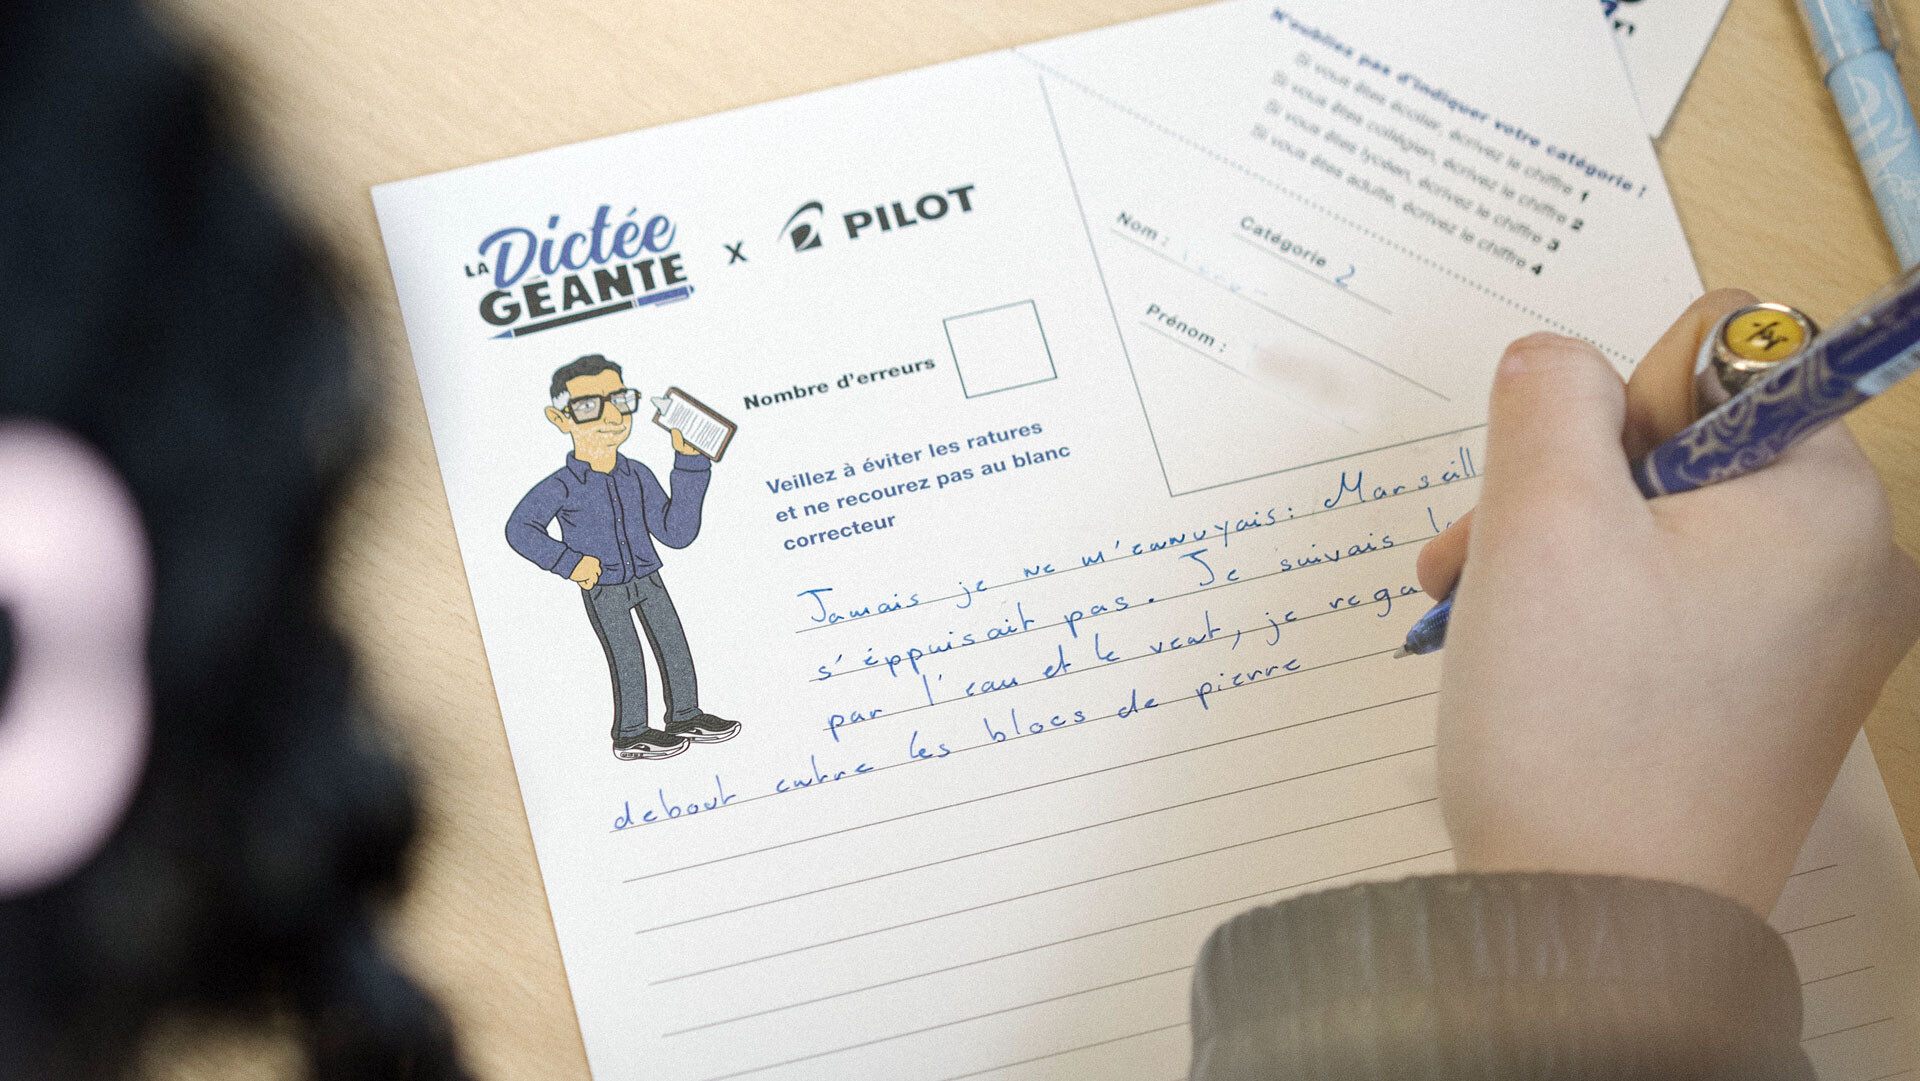 LA Dictée GÉANTE x PILOT
N'oubliez pas d'indiquer votre catégorie !
Si vous êtes écolier, écrivez le chiffre 1
Si vous êtes collégien, écrivez le chiffre 2
Si vous êtes lycéen, écrivez le chiffre 3
Si vous êtes adulte, écrivez le chiffre 4
Nom :
Catégorie 2
Prénom :
Nombre d'erreurs
Veillez à éviter les ratures
et ne recourez pas au blanc
correcteur
Jamais je ne m'ennuyais : Marseill
s'éppuisait pas. Je suivais
par l'eau et le vent, je rega
debout entre les blocs de pierre